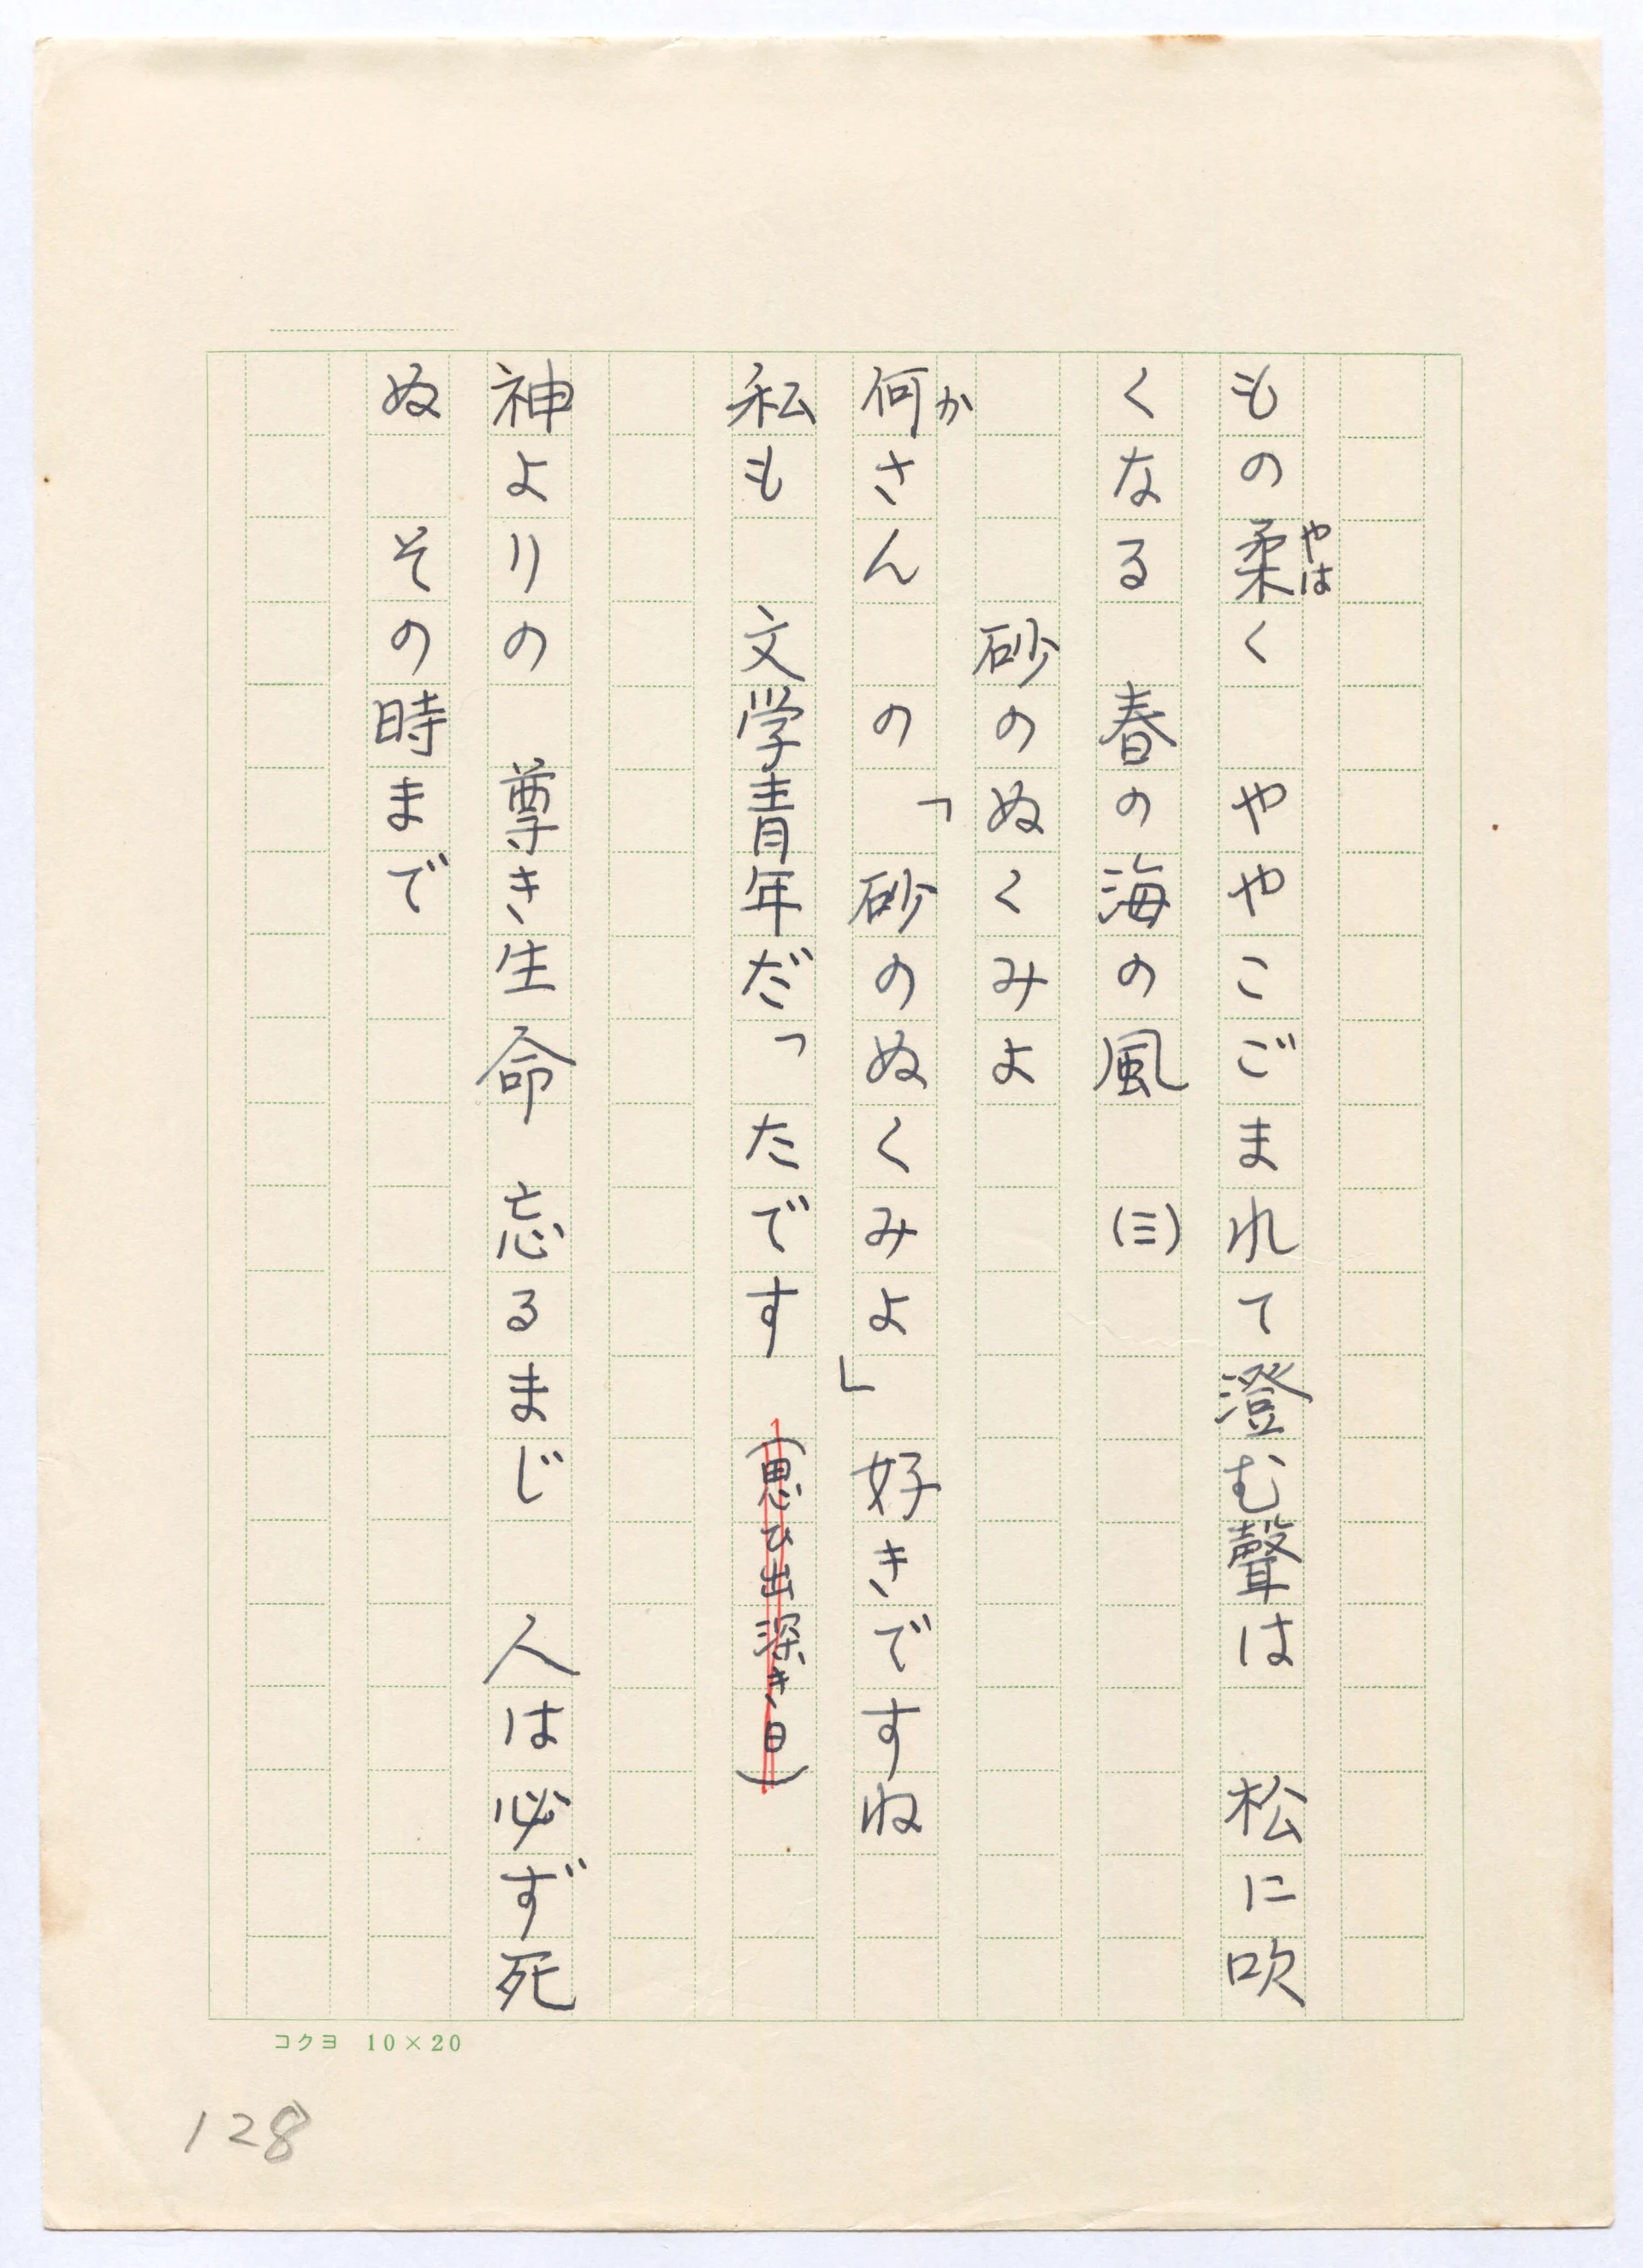 もの柔く　ややこごまれて澄む聲は　松に吹
やは
くなる　春の海の風　(三)
砂のぬくみよ
何さん　の「砂のぬくみよ」好きですね
か
私も　文学青年だったです　(思ひ出深き日)
神よりの　尊き生命　忘るまじ　人は必ず死
ぬ　その時まで
コクヨ 10×20
128